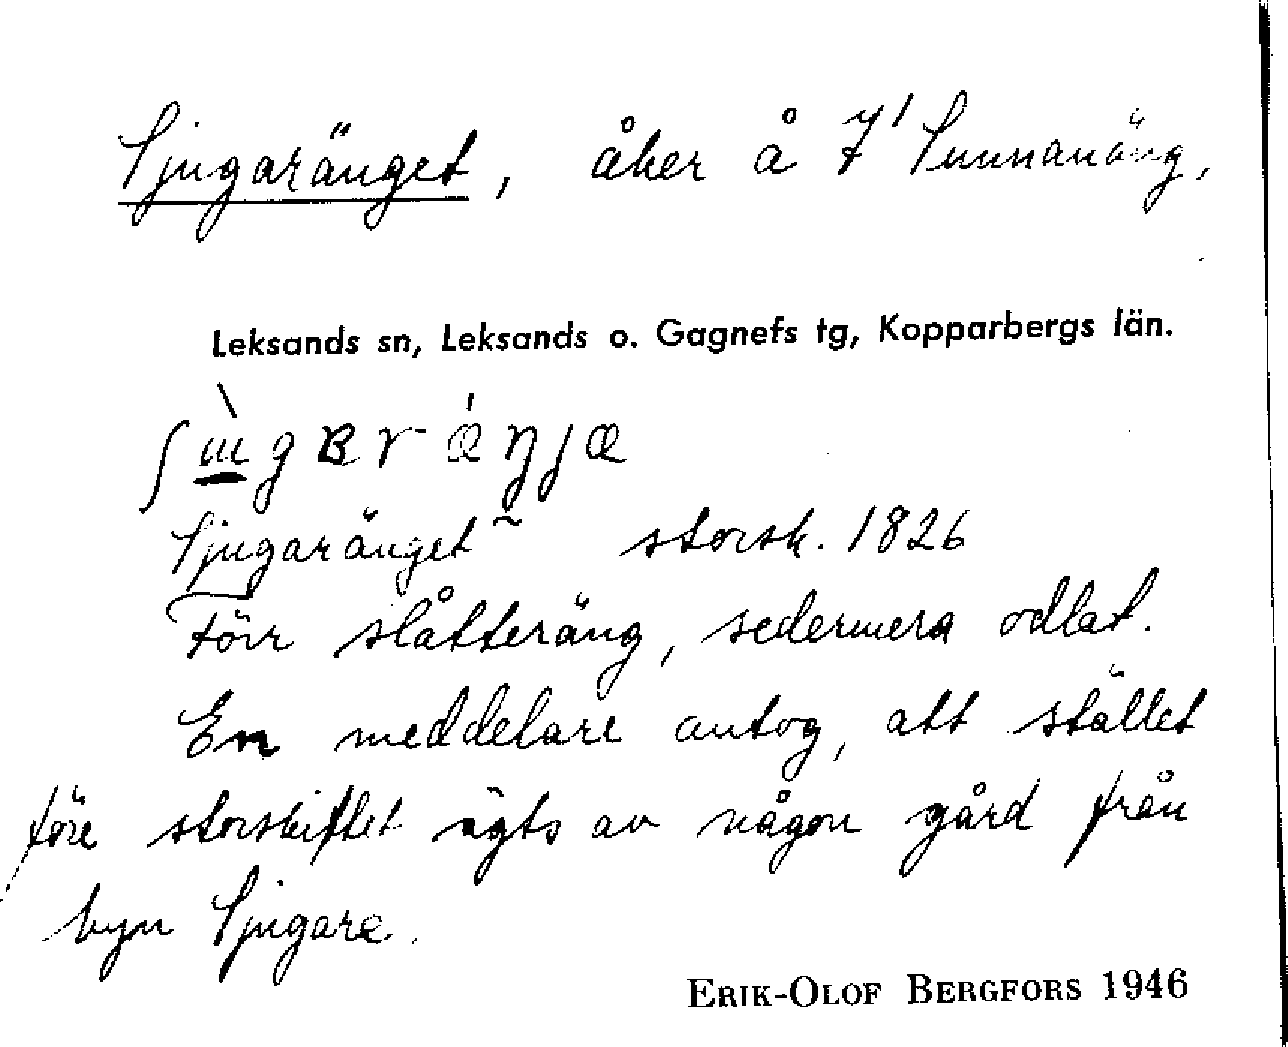 Sjugaränget, åker å 7¹ Sunnanäng,
Leksands sn, Leksands o. Gagnefs tg, Kopparbergs län.
Sjugaränget~ storsk. 1826
Förr slåtteräng, sedermera odlat.
En meddelare antog, att stället
före storskiftet ägts av någon gård från
byn Sjugare.
ERIK-OLOF BERGFORS 1946